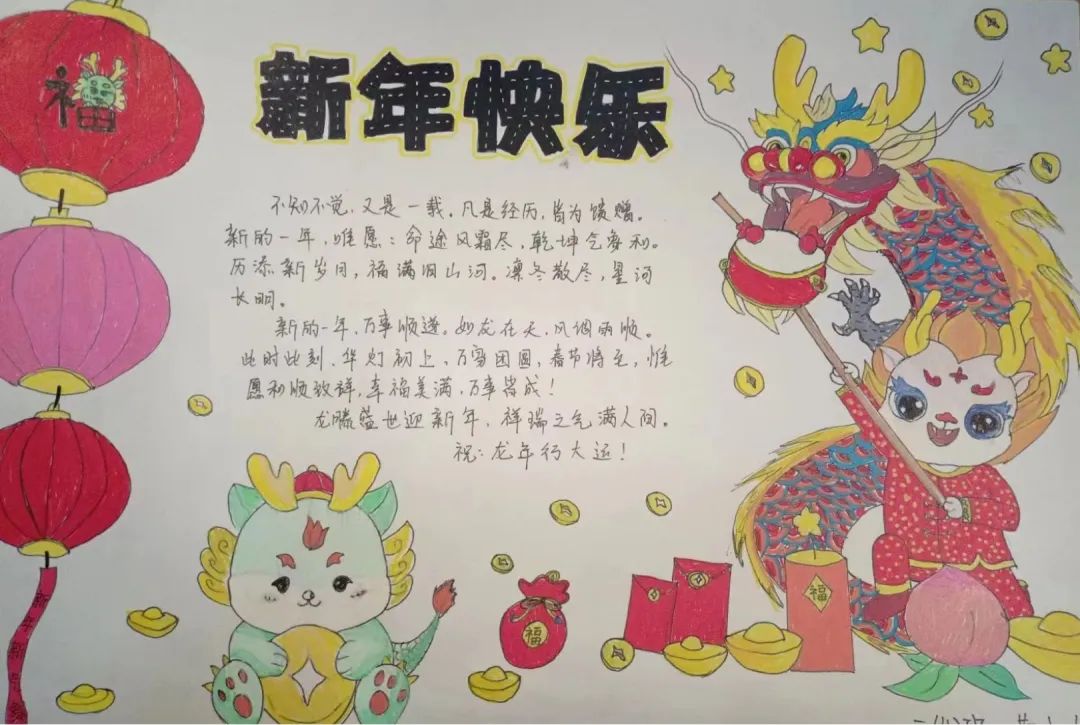 福
新年快乐
不知不觉，又是一载。凡是经历，皆为馈赠。
新的一年，唯愿：命途风霜尽，乾坤气象和。
历添新岁月，福满旧山河。凛冬散尽，星河
长明。
新的一年，万事顺遂。如龙在天，风调雨顺。
此时此刻，华灯初上，万家团圆，春节将至，惟
愿和顺致祥，幸福美满，万事皆成！
龙腾盛世迎新年，祥瑞之气满人间。
祝：龙年行大运！
福
福